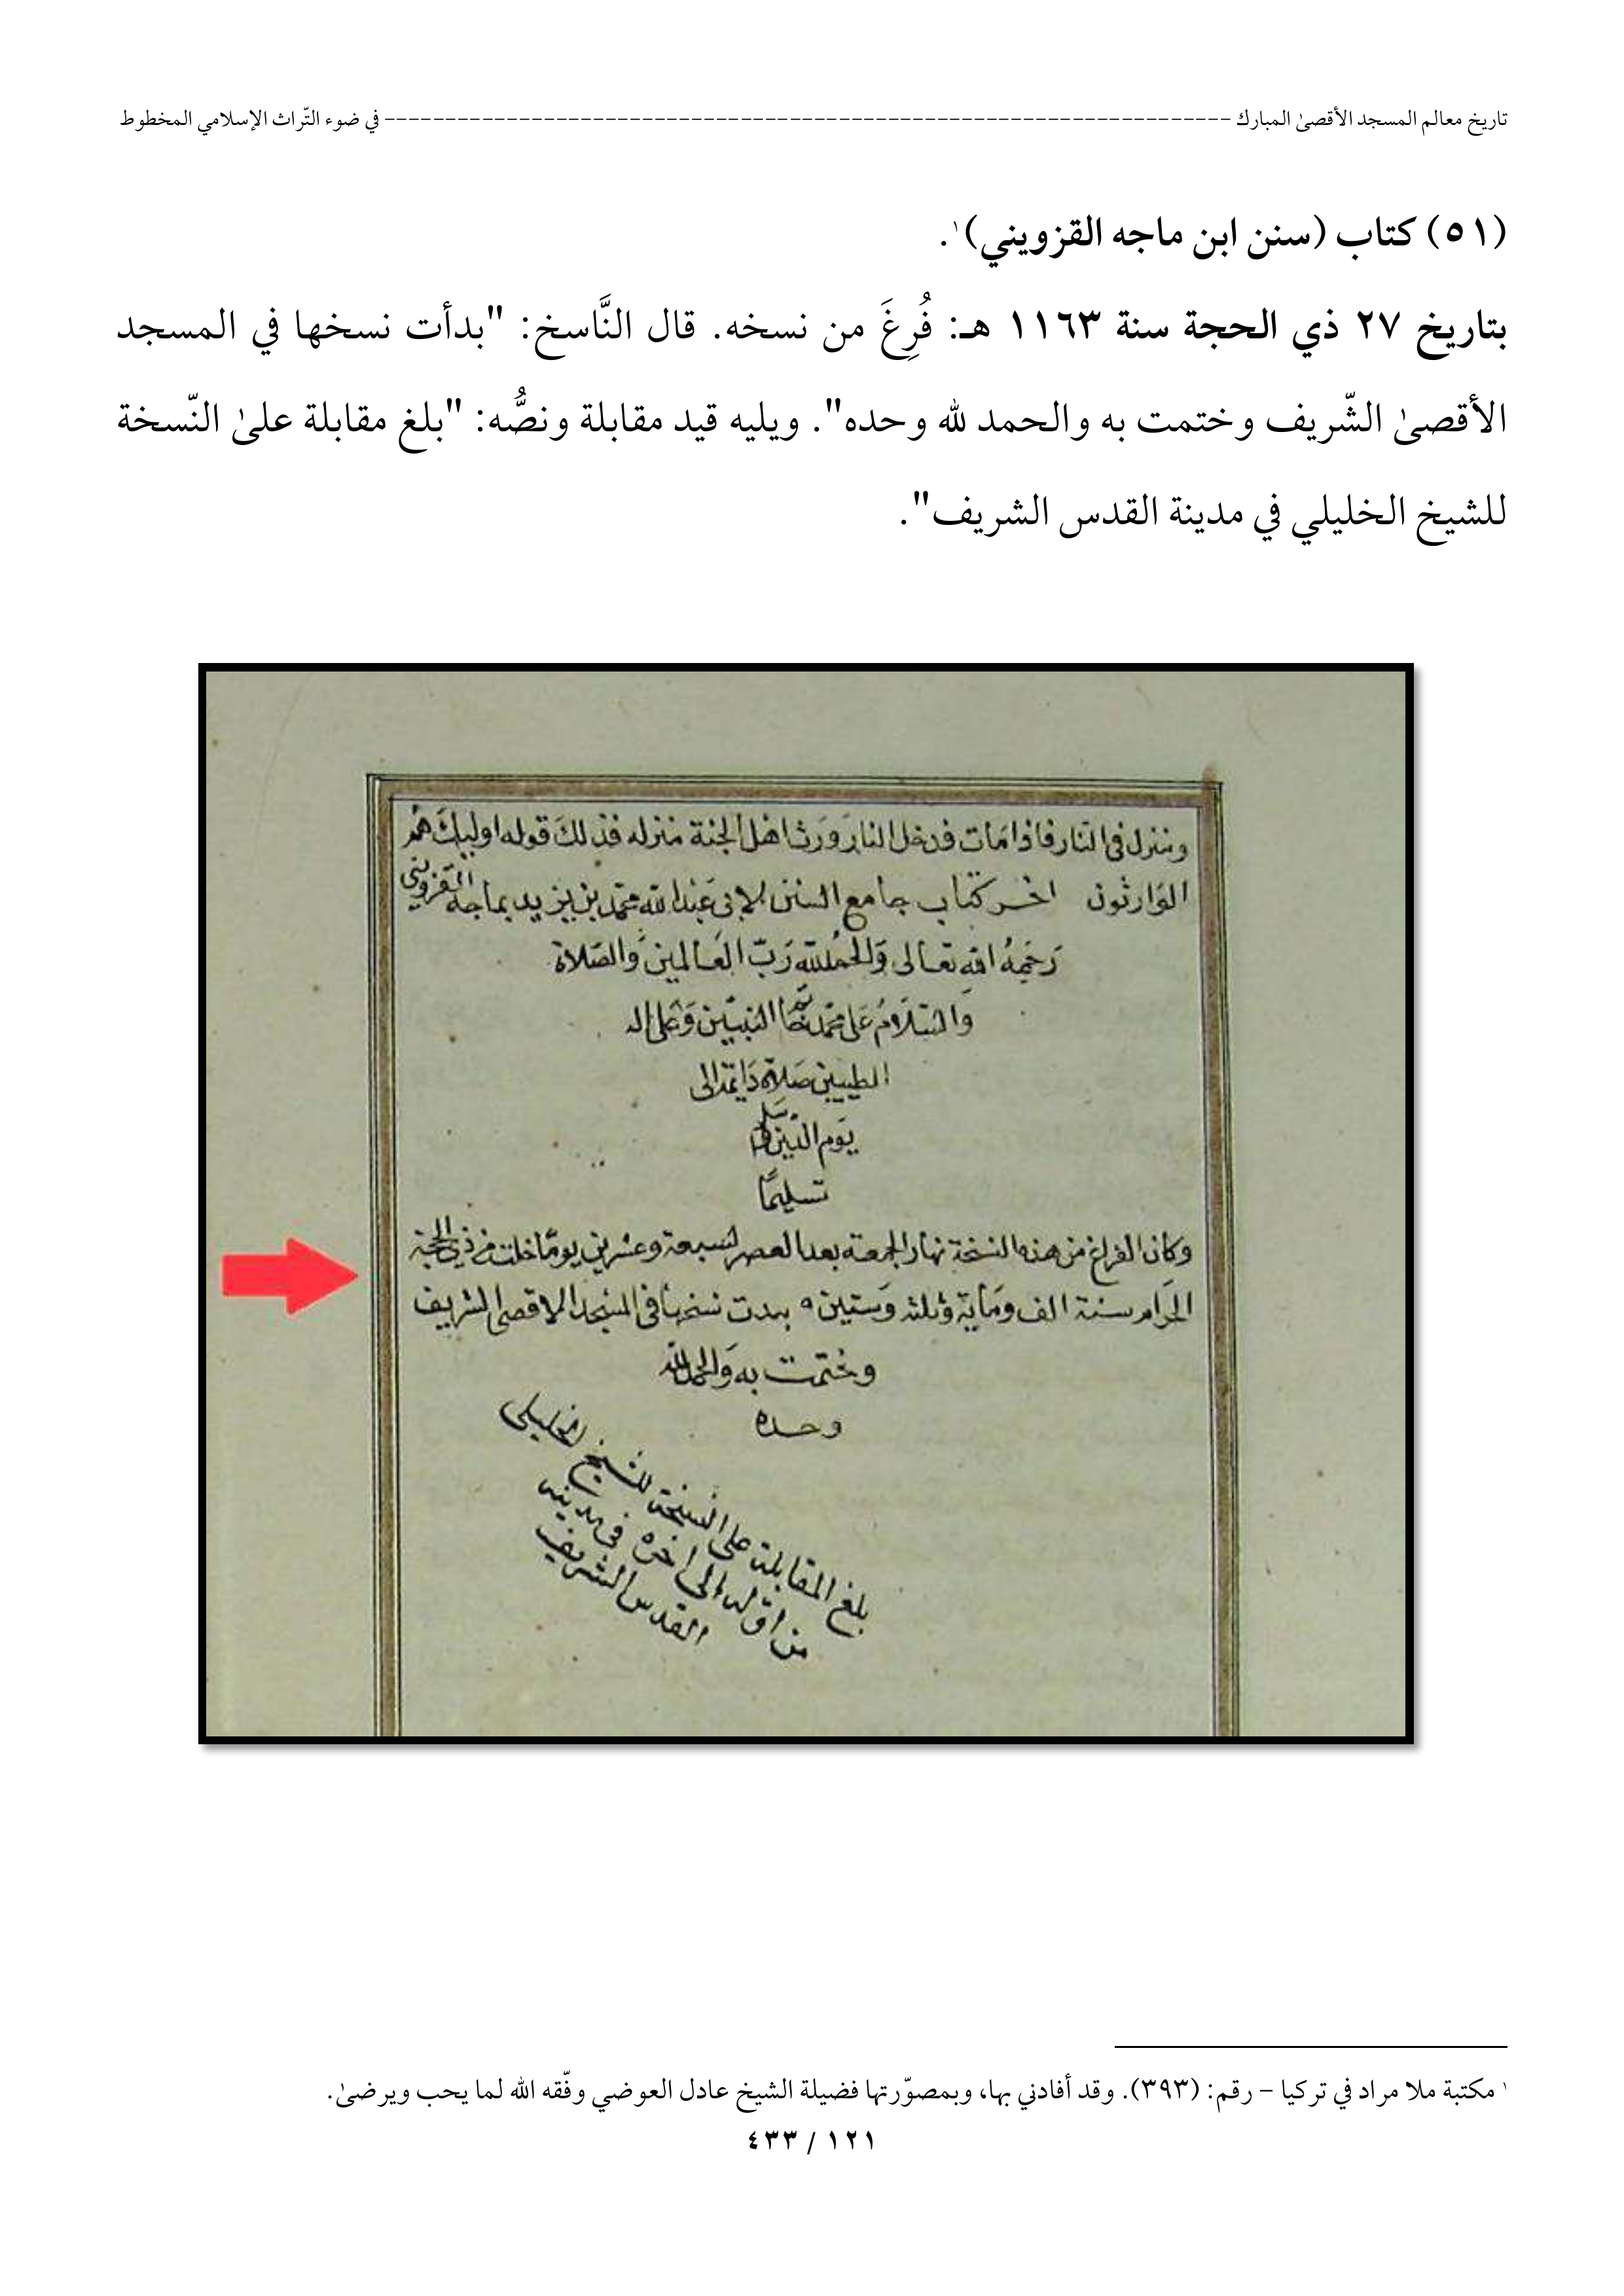 تاريخ معالم المسجد الأقصىٰ المبارك ---------------------------------------------------------------------- في ضوء التّراث الإسلامي المخطوط
(٥١) كتاب (سنن ابن ماجه القزويني)١.
بتاريخ ٢٧ ذي الحجة سنة ١١٦٣ هـ: فُرِغَ من نسخه. قال النَّاسخ: "بدأت نسخها في المسجد
الأقصىٰ الشّريف وختمت به والحمد لله وحده". ويليه قيد مقابلة ونصُّه: "بلغ مقابلة علىٰ النّسخة
للشيخ الخليلي في مدينة القدس الشريف".
ومنزل في النار فاذا مَات فدخل النار وَرَث اهل الجنة منزله فذلكَ قوله اوليكَ هُم
الوَارثون اخر كتاب جامع السنن لابي عَبْد الله محمد بن يزيد بماجه القزويني
رَحمَهُ الله تعالى وَالحمْد لله رَبّ العَالمين وَالصّلاة
وَالسّلَامُ عَلى محمّد خاتم النبيّين وَعَلى اله
الطيبين صَلاة دَايمَة الى
يَوم الدّين وسَلم
تسليمًا
وكان الفراغ من هذه النسخة نهار الجمعة بعد العصر لسبعة وعشرين يومًا خلت من ذي الحجة
الحرَام سَنة الف وَماية وثلثة وَستين ٥ بدت نسخها في المسْجد الاقصى الشريف
وختمت به وَالحمد لله
وحده
بلغ المقابلة على النسخة للشيخ الخليلي
من اوّله الى اخره في مدينة
القدس الشريف
١ مكتبة ملا مراد في تركيا – رقم: (٣٩٣). وقد أفادني بها، وبمصوّرتها فضيلة الشيخ عادل العوضي وفّقه الله لما يحب ويرضىٰ.
١٢١ / ٤٣٣